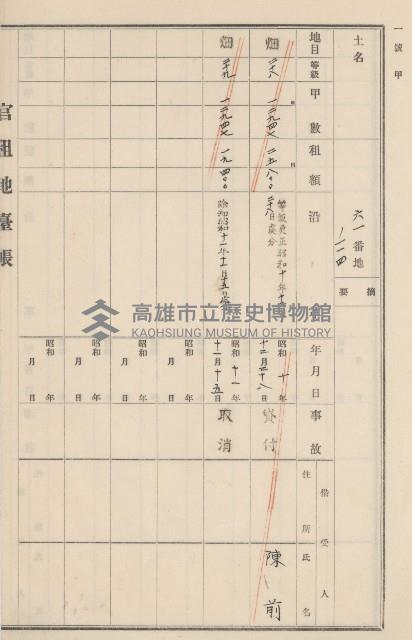 一號甲
土名
六一番地
ノ一四
摘要
地目 等級 甲數 租額 沿 年月日 事故 借受人 住所 氏名
畑 二八 一二九四七 二五八〇〇
等級更正昭和十年十二月
二八日處分
昭和十年十二月二十八日 貸付 陳前
畑 二九 一二九四七 一九四〇〇
除却昭和十一年十一月十五日
昭和十一年十一月十五日 取消
昭和 年 月 日
昭和 年 月 日
昭和 年 月 日
昭和 年 月 日
官租地臺帳
高雄市立歷史博物館
KAOHSIUNG MUSEUM OF HISTORY